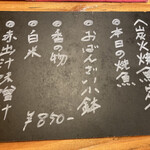 〈炭火焼魚定食〉
◎本日の焼魚
◎おばんざい小鉢
◎香の物
◎白米
◎赤出汁味噌汁
¥850-